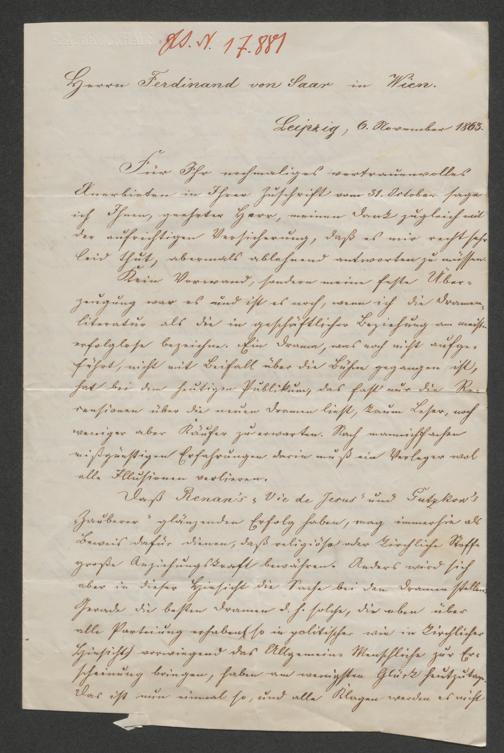 H.I.N. 17.881
Herrn Ferdinand von Saar in Wien.
Leipzig, 6. November 1863.
Für Ihr nochmaliges vertrauenvolles
Anerbieten in Ihrer Zuschrift vom 31. October sage
ich Ihnen, geehrter Herr, meinen Dank zugleich mit
der aufrichtigen Versicherung, daß es mir recht sehr
leid thut, abermals ablehnend antworten zu müssen.
Kein Vorwand, sondern meine feste Ueber-
zeugung war es und ist es noch, wenn ich die Dramen-
literatur als die in geschäftlicher Beziehung am meist
erfolglose bezeichne. Ein Drama, was noch nicht aufge-
führt, nicht mit Beifall über die Bühne gegangen ist,
hat bei dem heutigen Publikum, das fast nur die Re-
censionen über die neuen Dramen liest, kaum Leser, noch
weniger aber Käufer zu erwarten. Nach mannichfachen
mißgünstigen Erfahrungen darin muß ein Verleger wol
alle Illusionen verlieren.
Daß Renan's „Vie de Jesus" und Gutzkow's
Zauberer" glänzenden Erfolg haben, mag immerhin als
Beweis dafür dienen, daß religiöse oder kirchliche Stoffe
große Anziehungskraft bewähren. Anders wird sich
aber in dieser Hinsicht die Sache bei den Dramen stellen.
Gerade die besten Dramen d. h. solche, die eben über
alle Parteiung erhaben (so in politischer wie in kirchlicher
Hinsicht) vorwiegend das Allgemein-Menschliche zur Er-
scheinung bringen, haben am wenigsten Glück heutzutage.
Das ist nun einmal so, und alle Klagen werden es nicht